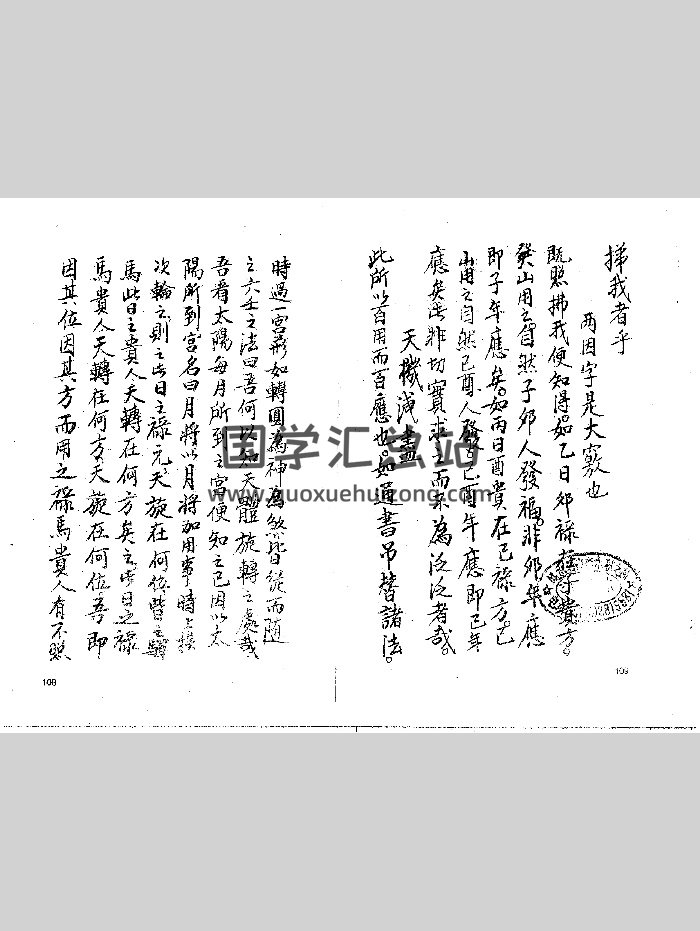 時過一宮形如轉圓為神為煞皆從而隨
之六壬之法曰吾何以知天體旋轉之處哉
吾看太陽每月所到之宮便知之已因以太
陽所到宮名曰月將以月將加用事時上挨
次輪之則之此日之祿元天旋在何位皆之驛
馬此日之貴人天轉在何方矣之此日之祿
馬貴人天轉在何方天旋在何位吾即
因其位因其方而用之祿馬貴人有不照
108
拂我者乎
两因字是大竅也
既照拂我便知得如乙日卯祿在子貴方。
癸山用之自然子卯人發福。非卯年應
即子年應矣。如丙日酉貴在巳祿方。巳
山用之自然巳酉人發。巳酉年應即巳年
應矣此非切實求之而未為泛泛者哉。
天機洩盡
此所以百用而百應也。如通書吊替諸法。
109
国学汇总站
www.guoxuehuizong.com